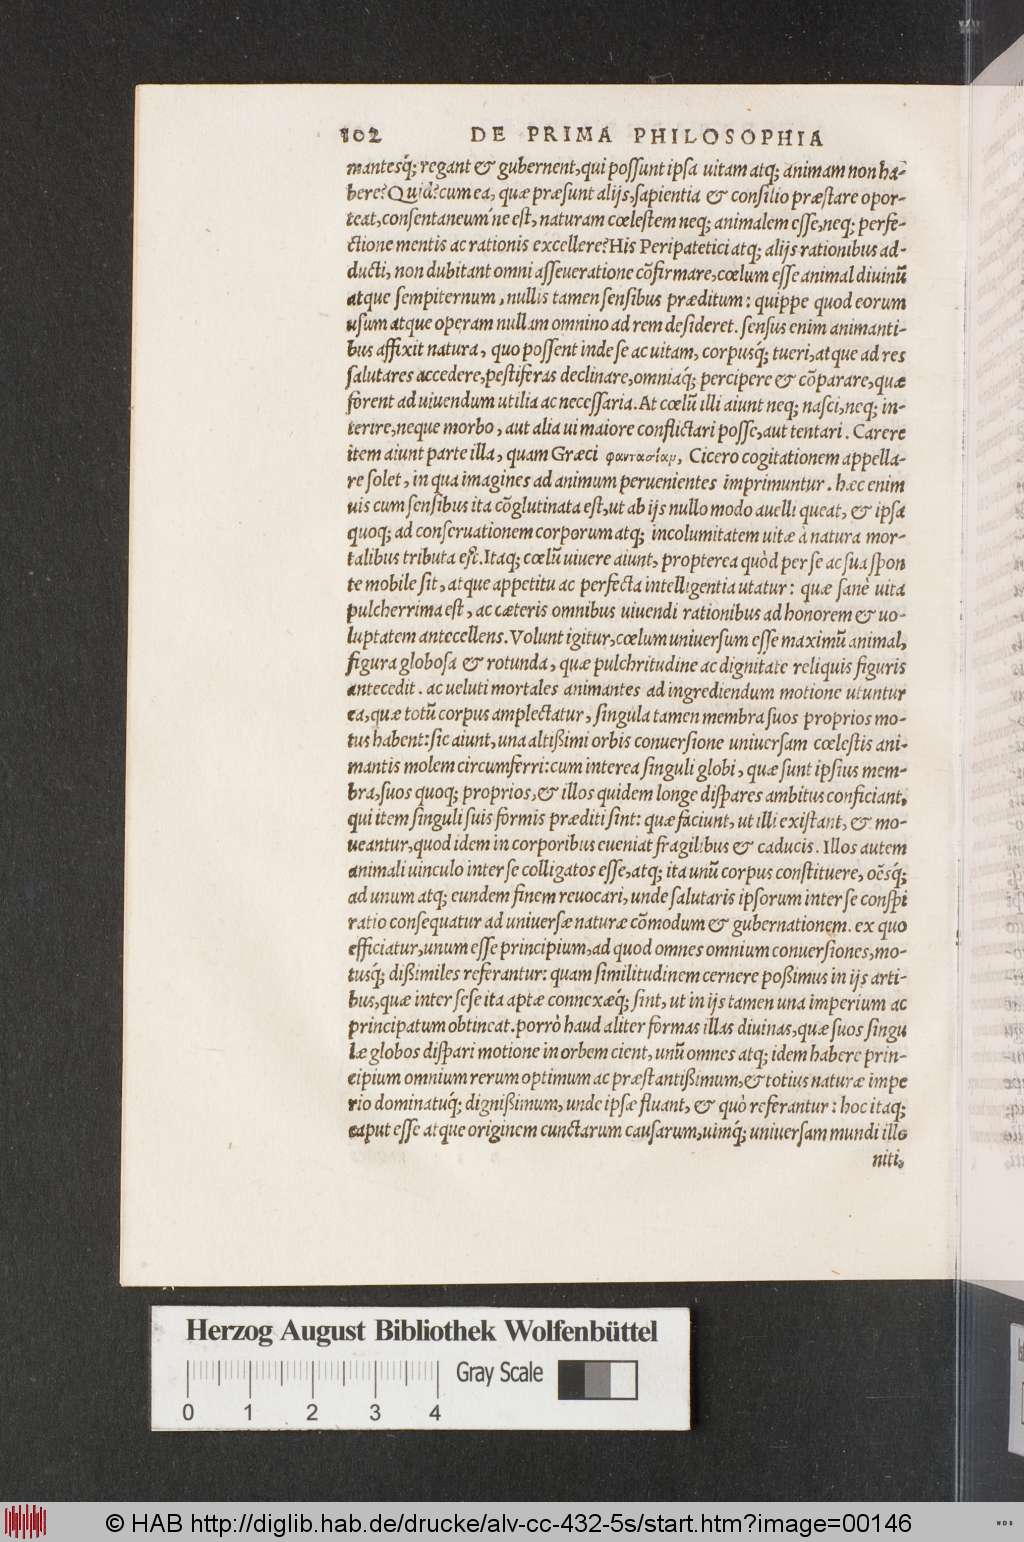 102 DE PRIMA PHILOSOPHIA
mantesq́; regant & gubernent, qui possunt ipsa uitam atq; animam non ha-
bere? Quid? cum ea, quæ præsunt alijs, sapientia & consilio præstare opor-
teat, consentaneum'ne est, naturam cœlestem neq; animalem esse, neq; perfe-
ctione mentis ac rationis excellere? His Peripatetici atq; alijs rationibus ad-
ducti, non dubitant omni asseueratione cõfirmare, cœlum esse animal diuinũ
atque sempiternum, nullis tamen sensibus præditum: quippe quod eorum
usum atque operam nullam omnino ad rem desideret. sensus enim animanti-
bus affixit natura, quo possent inde se ac uitam, corpusq́; tueri, atque ad res
salutares accedere, pestiferas declinare, omniaq́; percipere & cõparare, quæ
forent ad uiuendum utilia ac necessaria. At cœlũ illi aiunt neq; nasci, neq; in-
terire, neque morbo, aut alia ui maiore conflictari posse, aut tentari. Carere
item aiunt parte illa, quam Græci φαντασίαν, Cicero cogitationem appella-
re solet, in qua imagines ad animum peruenientes imprimuntur. hæc enim
uis cum sensibus ita cõglutinata est, ut ab ijs nullo modo auelli queat, & ipsa
quoq; ad conseruationem corporum atq; incolumitatem uitæ à natura mor-
talibus tributa est. Itaq; cœlũ uiuere aiunt, propterea quòd per se ac sua spon
te mobile sit, atque appetitu ac perfecta intelligentia utatur: quæ sanè uita
pulcherrima est, ac cæteris omnibus uiuendi rationibus ad honorem & uo-
luptatem antecellens. Volunt igitur, cœlum uniuersum esse maximũ animal,
figura globosa & rotunda, quæ pulchritudine ac dignitate reliquis figuris
antecedit. ac ueluti mortales animantes ad ingrediendum motione utuntur
ea, quæ totũ corpus amplectatur, singula tamen membra suos proprios mo-
tus habent: sic aiunt, una altißimi orbis conuersione uniuersam cœlestis ani-
mantis molem circumferri: cum interea singuli globi, quæ sunt ipsius mem-
bra, suos quoq; proprios, & illos quidem longe dispares ambitus conficiant,
qui item singuli suis formis præditi sint: quæ faciunt, ut illi existant, & mo-
ueantur, quod idem in corporibus eueniat fragilibus & caducis. Illos autem
animali uinculo inter se colligatos esse, atq; ita unũ corpus constituere, oẽsq́;
ad unum atq; eundem finem reuocari, unde salutaris ipsorum inter se conspi
ratio consequatur ad uniuersæ naturæ cõmodum & gubernationem. ex quo
efficiatur, unum esse principium, ad quod omnes omnium conuersiones, mo-
tusq́; dißimiles referantur: quam similitudinem cernere poßimus in ijs arti-
bus, quæ inter sese ita aptæ connexæq́; sint, ut in ijs tamen una imperium ac
principatum obtineat. porrò haud aliter formas illas diuinas, quæ suos singu
læ globos dispari motione in orbem cient, unũ omnes atq; idem habere prin-
cipium omnium rerum optimum ac præstantißimum, & totius naturæ impe
rio dominatuq́; dignißimum, unde ipsæ fluant, & quò referantur: hoc itaq;
caput esse atque originem cunctarum causarum, uimq́; uniuersam mundi illo
niti,
Herzog August Bibliothek Wolfenbüttel
Gray Scale
0 1 2 3 4
© HAB http://diglib.hab.de/drucke/alv-cc-432-5s/start.htm?image=00146